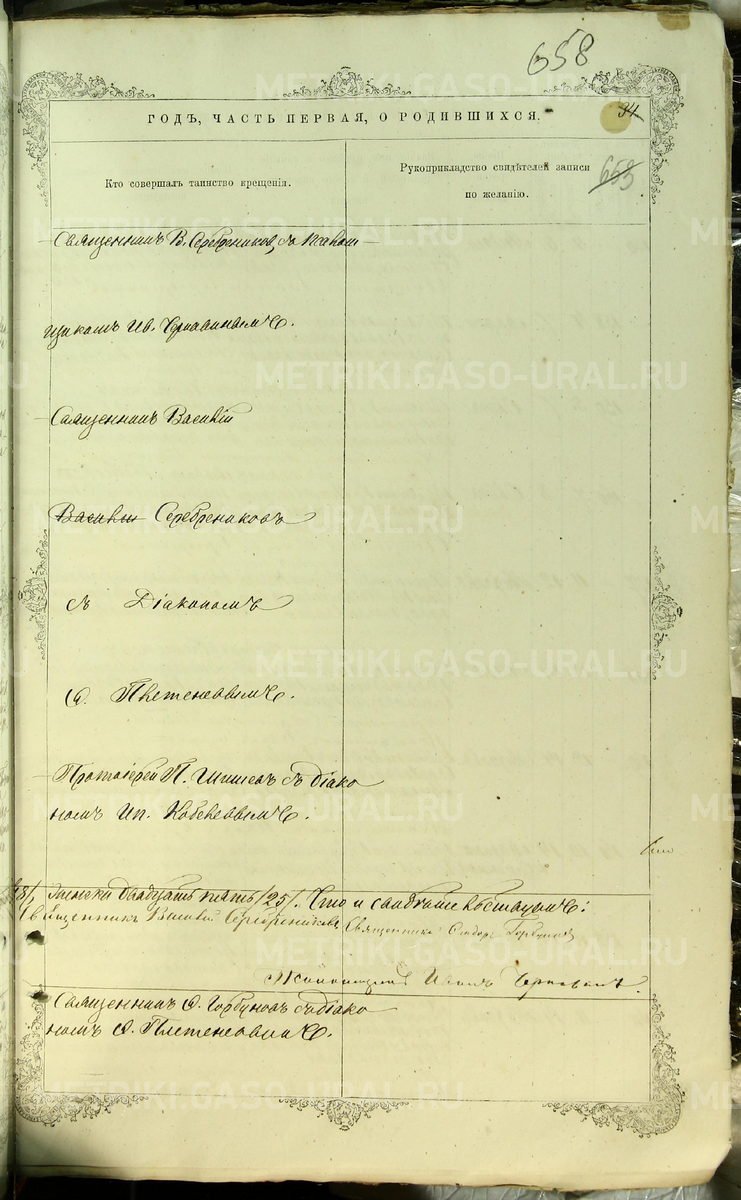 658
34
ГОДЪ, ЧАСТЬ ПЕРВАЯ, О РОДИВШИХСЯ.
Кто совершалъ таинство крещенія.
Рукоприкладство свидѣтелей записи
по желанію.
653
Священникъ В. Серебрениковъ, съ псалом-
щикомъ Ив.
Священникъ Василій
Василій Серебрениковъ
съ Діакономъ
Ѳ. Плетеневымъ.
Протоіерей П. Шишевъ съ діако
номъ Ип.
двадцать пять /25/. Что и свидѣтельствуемъ:
Священникъ Василій Серебрениковъ Священникъ Ѳеодоръ Горбуновъ
Псаломщикъ Иванъ
Священникъ Ѳ. Горбуновъ съ діако
номъ Ѳ. Плетеневымъ.
METRIKI.GASO-URAL.RU